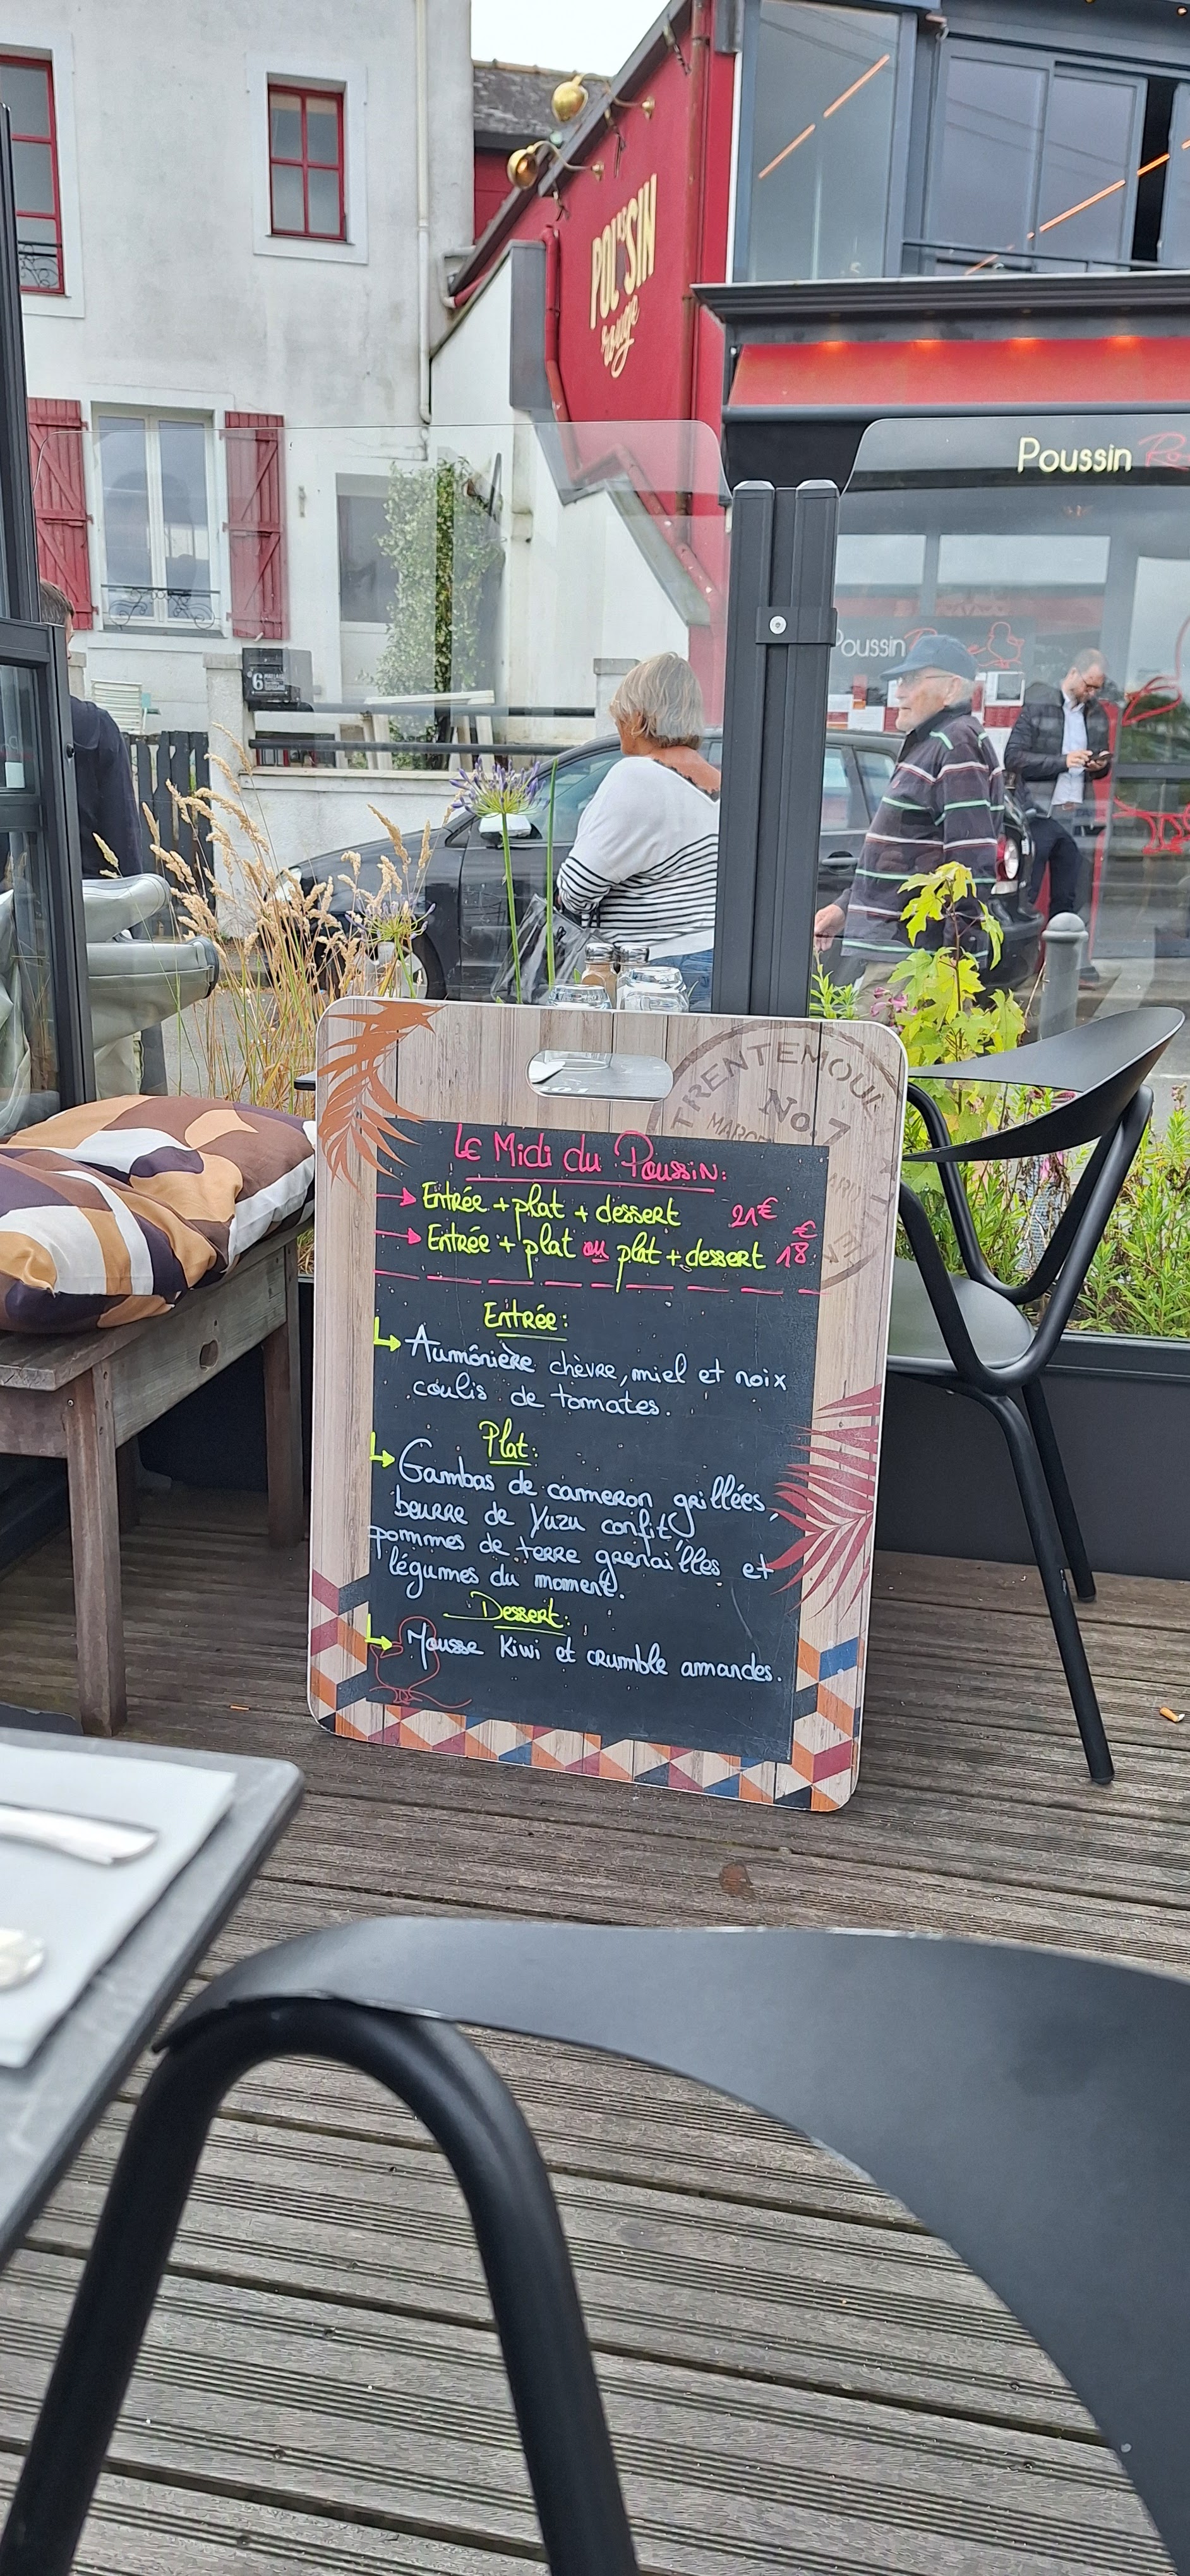 POUSSIN
rouge
Poussin Ro
Poussin
6
TRENTEMOUL
No. 7
Le Midi du Poussin:
→ Entrée + plat + dessert 21€
→ Entrée + plat ou plat + dessert 18€
Entrée:
Aumônière chèvre, miel et noix
coulis de tomates.
Plat:
Gambas de cameron grillées,
beurre de Yuzu confit,
pommes de terre grenailles et
légumes du moment.
Dessert:
Mousse Kiwi et crumble amandes.